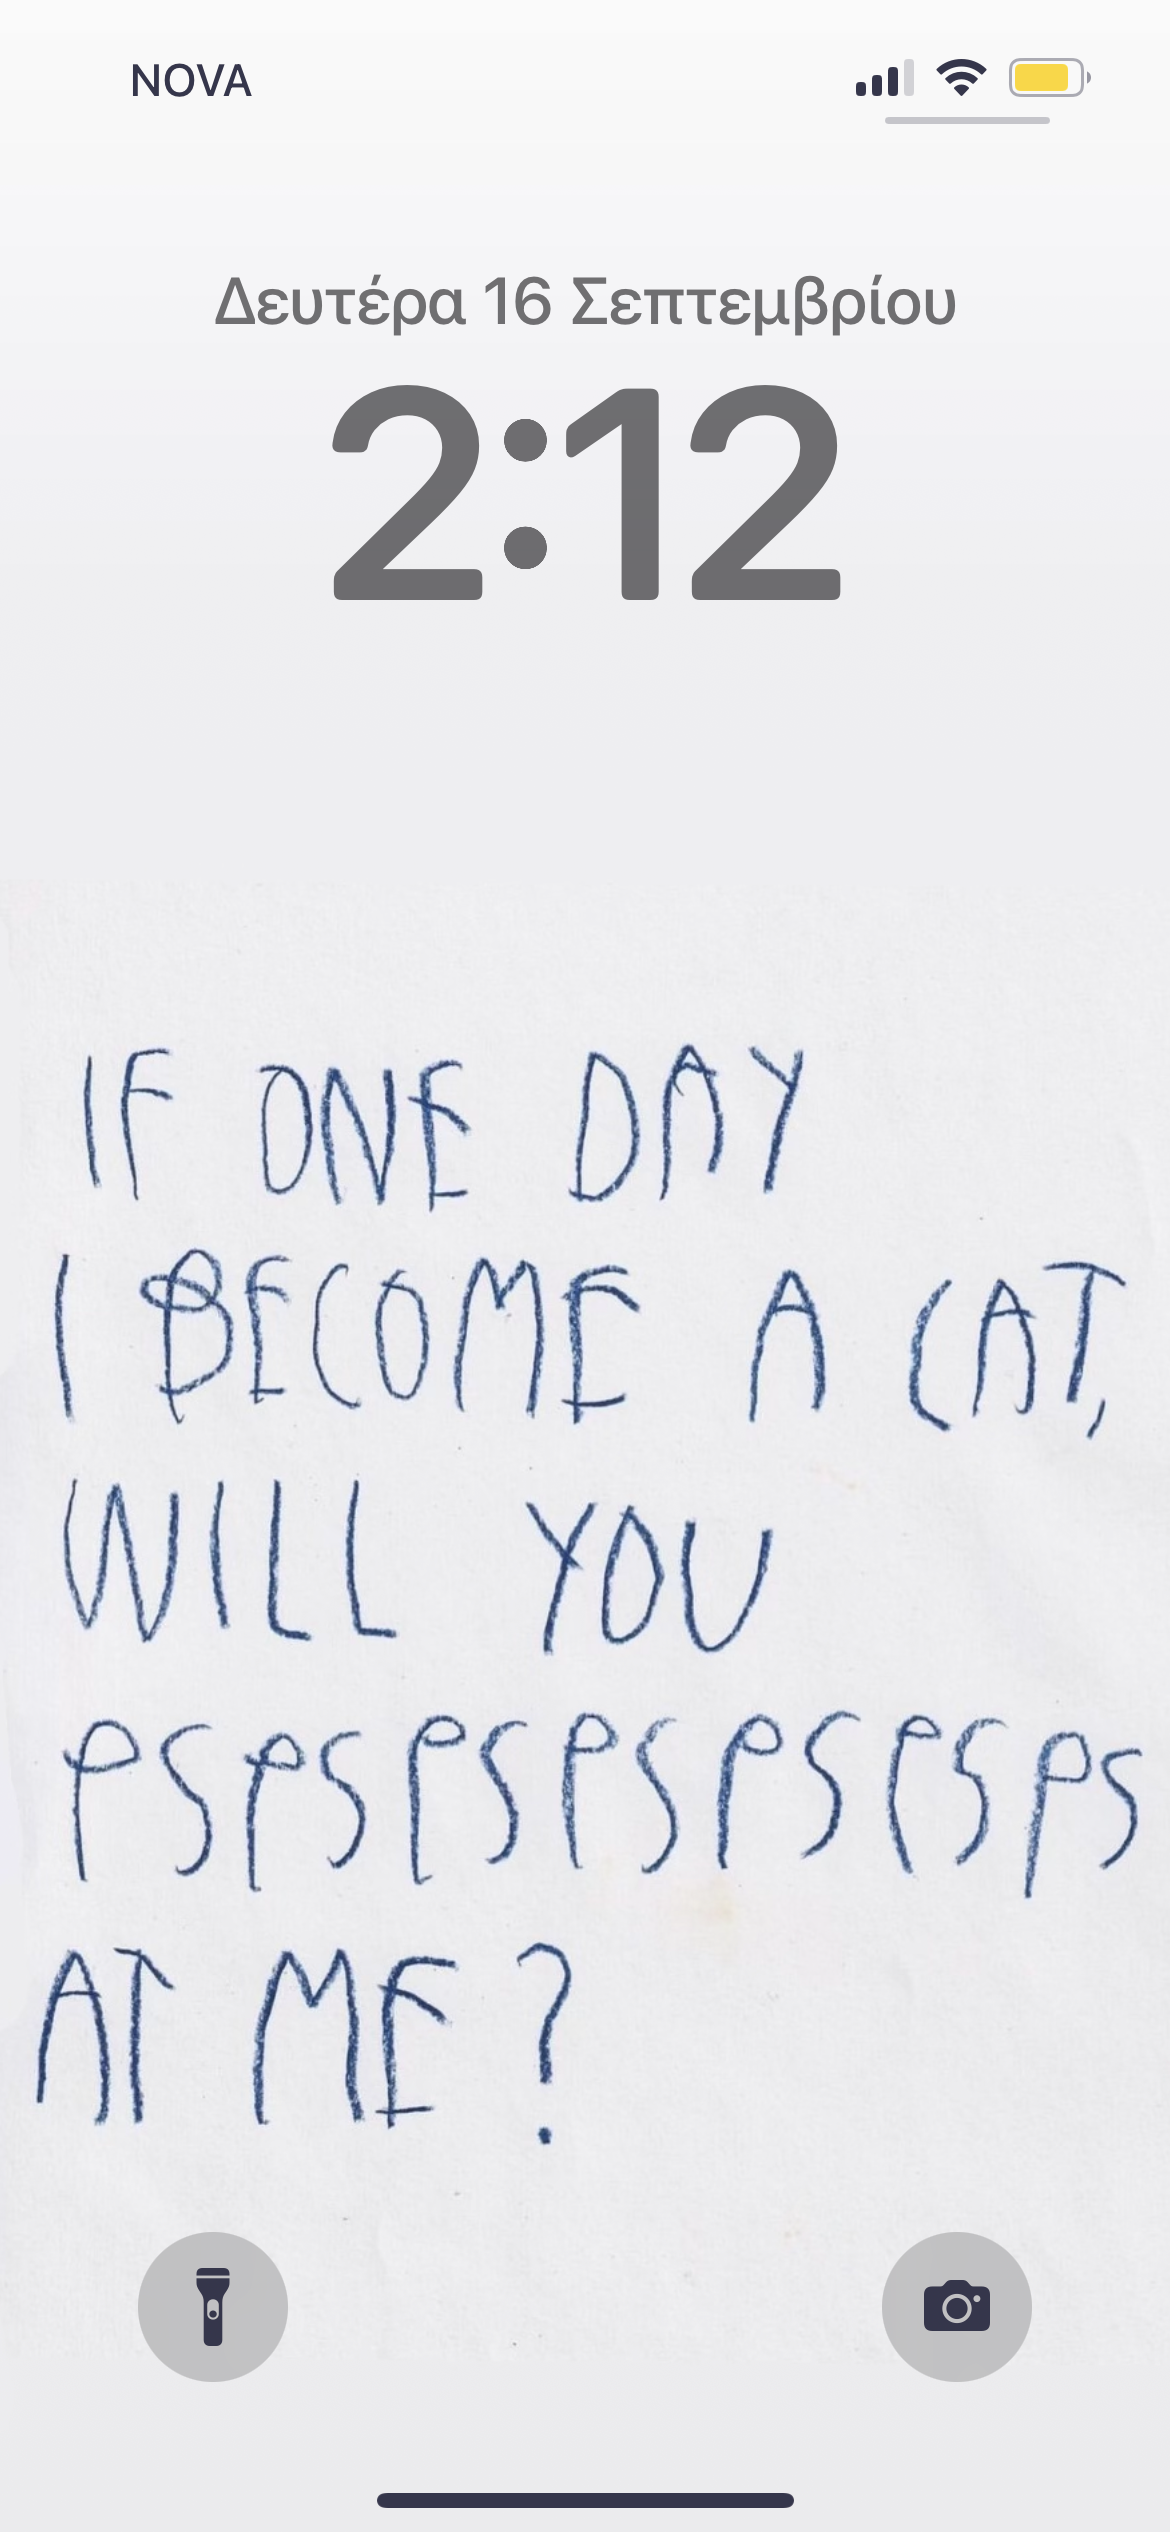 NOVA
Δευτέρα 16 Σεπτεμβρίου
2:12
IF ONE DAY
I BECOME A CAT,
WILL YOU
PSPSPSPSPSPSPS
AT ME?